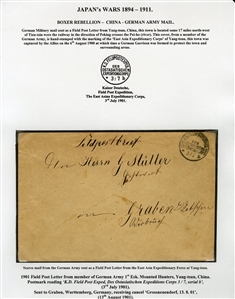 JAPAN's WARS 1894 – 1911.
BOXER REBELLION – CHINA – GERMAN ARMY MAIL.
German Military mail sent as a Field Post Letter from Yang-tsun, China, this town is located some 17 miles north-west
of Tien-tsin were the railway in the direction of Peking crosses the Pei-ho (river). This cover, from a member of the German
Army, is hand-stamped with the marking of the "East Asia Expeditionary Corps" of Yang-tsun, this town was
captured by the Allies on the 6th August 1900 at which time a German Garrison was formed to protect the town and
surrounding areas.
Kaiser Deutsch,
Field Post Expedition,
The East Asian Expeditionary Corps,
3rd July 1901.
Feldpostbrief
Herrn G Stüller
Graben
Stores mail from the German Army sent as a Field Post Letter from the East Asia Expeditionary Force of Yang-tsun.
1901 Field Post Letter from member German Army 1st Esk. Mounted Hunters, Yang-tsun, China.
Postmark reading 'K.D. Field Post Exped, Des Ostasiatischen Expeditions Corps 3 / 7, serial b',
(3rd July 1901).
Sent to Graben, Wurttemberg, Germany, receiving cancel 'Grossenendorf, 13. 8. 01'.
(13th August 1901).